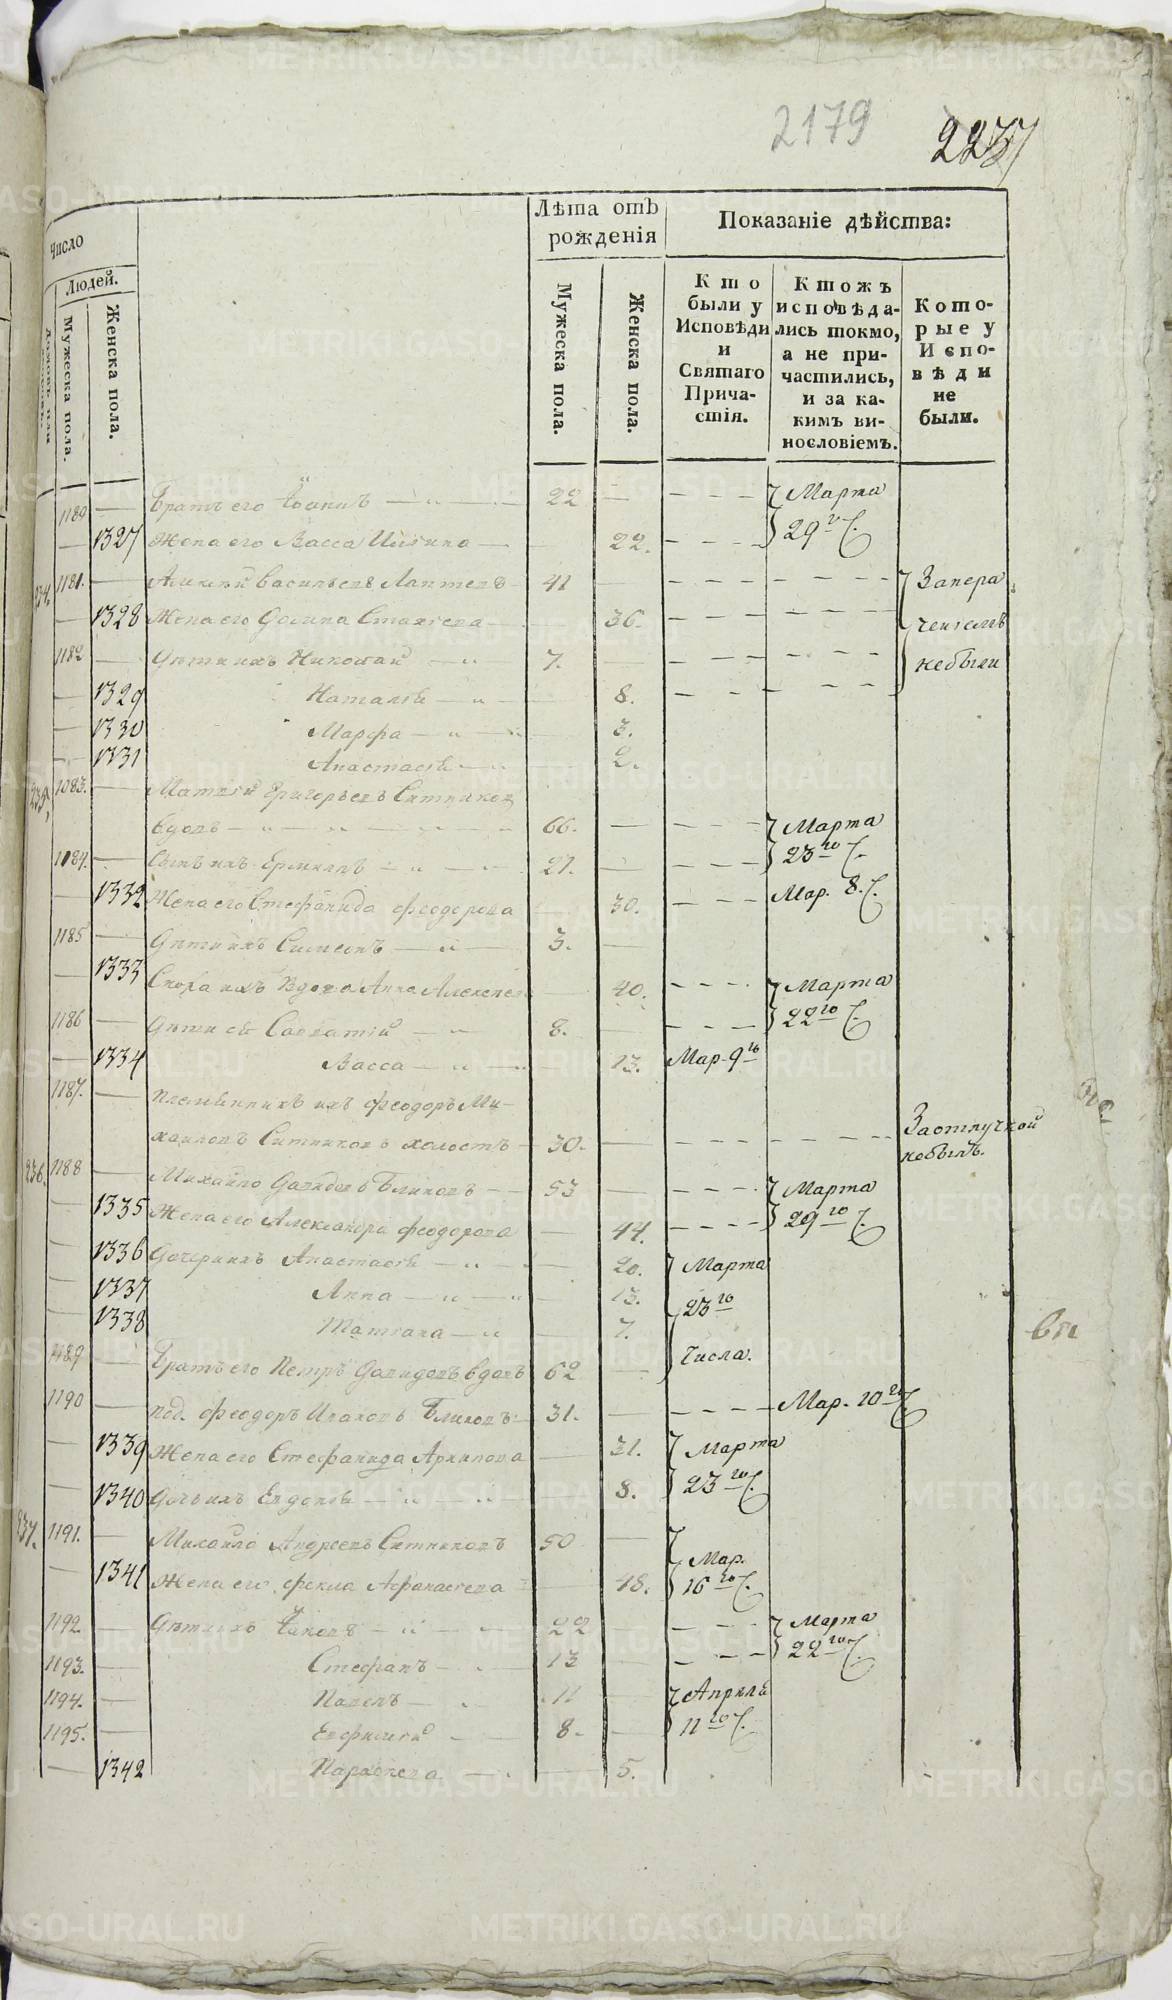 2179
2237
Число
Лѣта отъ рожденія
Показаніе дѣйства:
Людей.
Мужеска пола.
Женска пола.
Мужеска пола.
Женска пола.
Кто были у Исповѣди и Святаго Причастія.
Ктожъ исповѣдались токмо, а не причастились, и за какимъ винословіемъ.
Которые у Исповѣди не были.
1180 — Братъ его Іоаннъ — 22 — Марта
— 1327 Жена его Васса Ильина — 22. 29 го
1181. — Алексѣй Васильевъ Лаптевъ 41 — Занера
— 1328 Жена его Домна — 36. чениемъ
1182 — Дѣти ихъ Николай — 7. — небыли
— 1329 Наталія — 8.
— 1330 Марфа — 3.
— 1331 Анастасія — 2.
235. 1083. — Матѳей Григорьевъ Ситников
вдовъ — 66. — Марта
1184. — Сынъ ихъ Ермилъ — 27. — 23 го
— 1332 Жена его Стефанида Феодорова — 30. Мар. 8.
1185 — Дѣти ихъ Симеонъ — 3. —
— 1333 Сноха ихъ Вдова Анна Алексѣева — 40. Марта
1186 — Дѣти ей Савватій — 8. 22 го
— 1334 Васса — 13. Мар. 9 го
1187. — Племянникъ ихъ Феодоръ Ми-
хаиловъ Ситниковъ холостъ — 30. — Заотлучкой
небылъ.
236. 1188 — Михайло Давидовъ Блиновъ — 53 — Марта
— 1335 Жена его Александра Феодорова — 44. 29 го
— 1336 Дочери ихъ Анастасія — 20. Марта
— 1337 Анна — 13. 23 го
— 1338 Татіана — 7.
1189 — Братъ его Петръ Давидовъ вдовъ 62 — Числа.
1190 — под. Феодоръ Ивановъ Блиновъ — 31. — Мар. 10 го
— 1339 Жена его Стефанида Архипова — 31. Марта
— 1340 Дочь ихъ Евдокія — 8. 23 го
237. 1191. — Михайло Андреевъ Ситниковъ 50 —
Мар.
— 1341 Жена его Фекла Афанасьева — 48. 16 го
1192. — Дѣти ихъ Іаковъ — 22 — Марта
22 го
1193. — Стефанъ — 13
1194. — Павелъ — 11 — Апрѣля
1195. — Евфимій — 8. — 11 го
— 1342 Параскева — 5.
METRIKI.GASO-URAL.RU